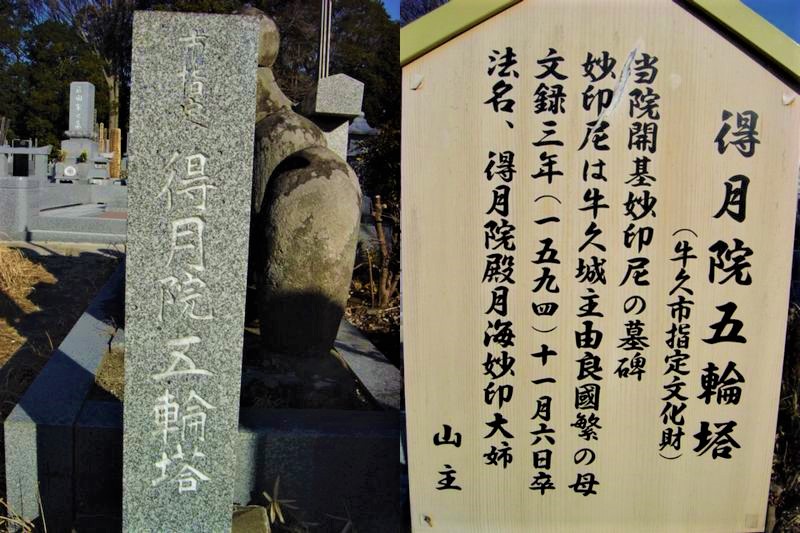 市指定
得月院五輪塔
得月院五輪塔
(牛久市指定文化財)
当院開基妙印尼の墓碑
妙印尼は牛久城主由良國繁の母
文録三年(一五九四)十一月六日卒
法名、得月院殿月海妙印大姉
山主